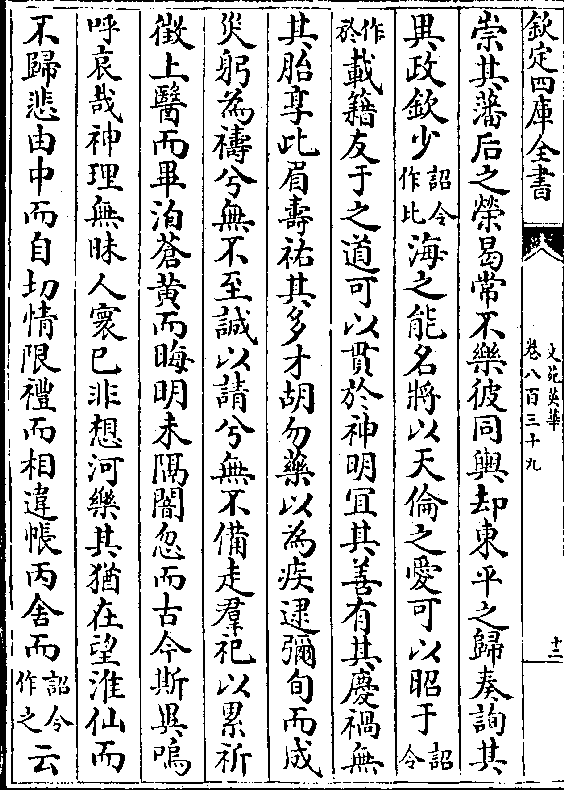 欽定四庫全書
文苑英華
卷八百三十九
十二
崇其藩后之榮曷常不樂彼同輿却東平之歸奏詢其
異政欽少詔令作比海之能名將以天倫之愛可以昭于詔令
作於載籍友于之道可以貫於神明宜其善有其慶禍無
其胎享此眉壽祐其多才胡勿藥以為疾逮彌旬而成
災躬為禱兮無不至誠以請兮無不備走羣祀以累祈
徴上醫而畢洎蒼黄而晦明未隔闇忽而古今斯異嗚
呼哀哉神理無昧人寰已非想河樂其猶在望淮仙而
不歸悲由中而自切情限禮而相違帳丙舍而詔令作之云